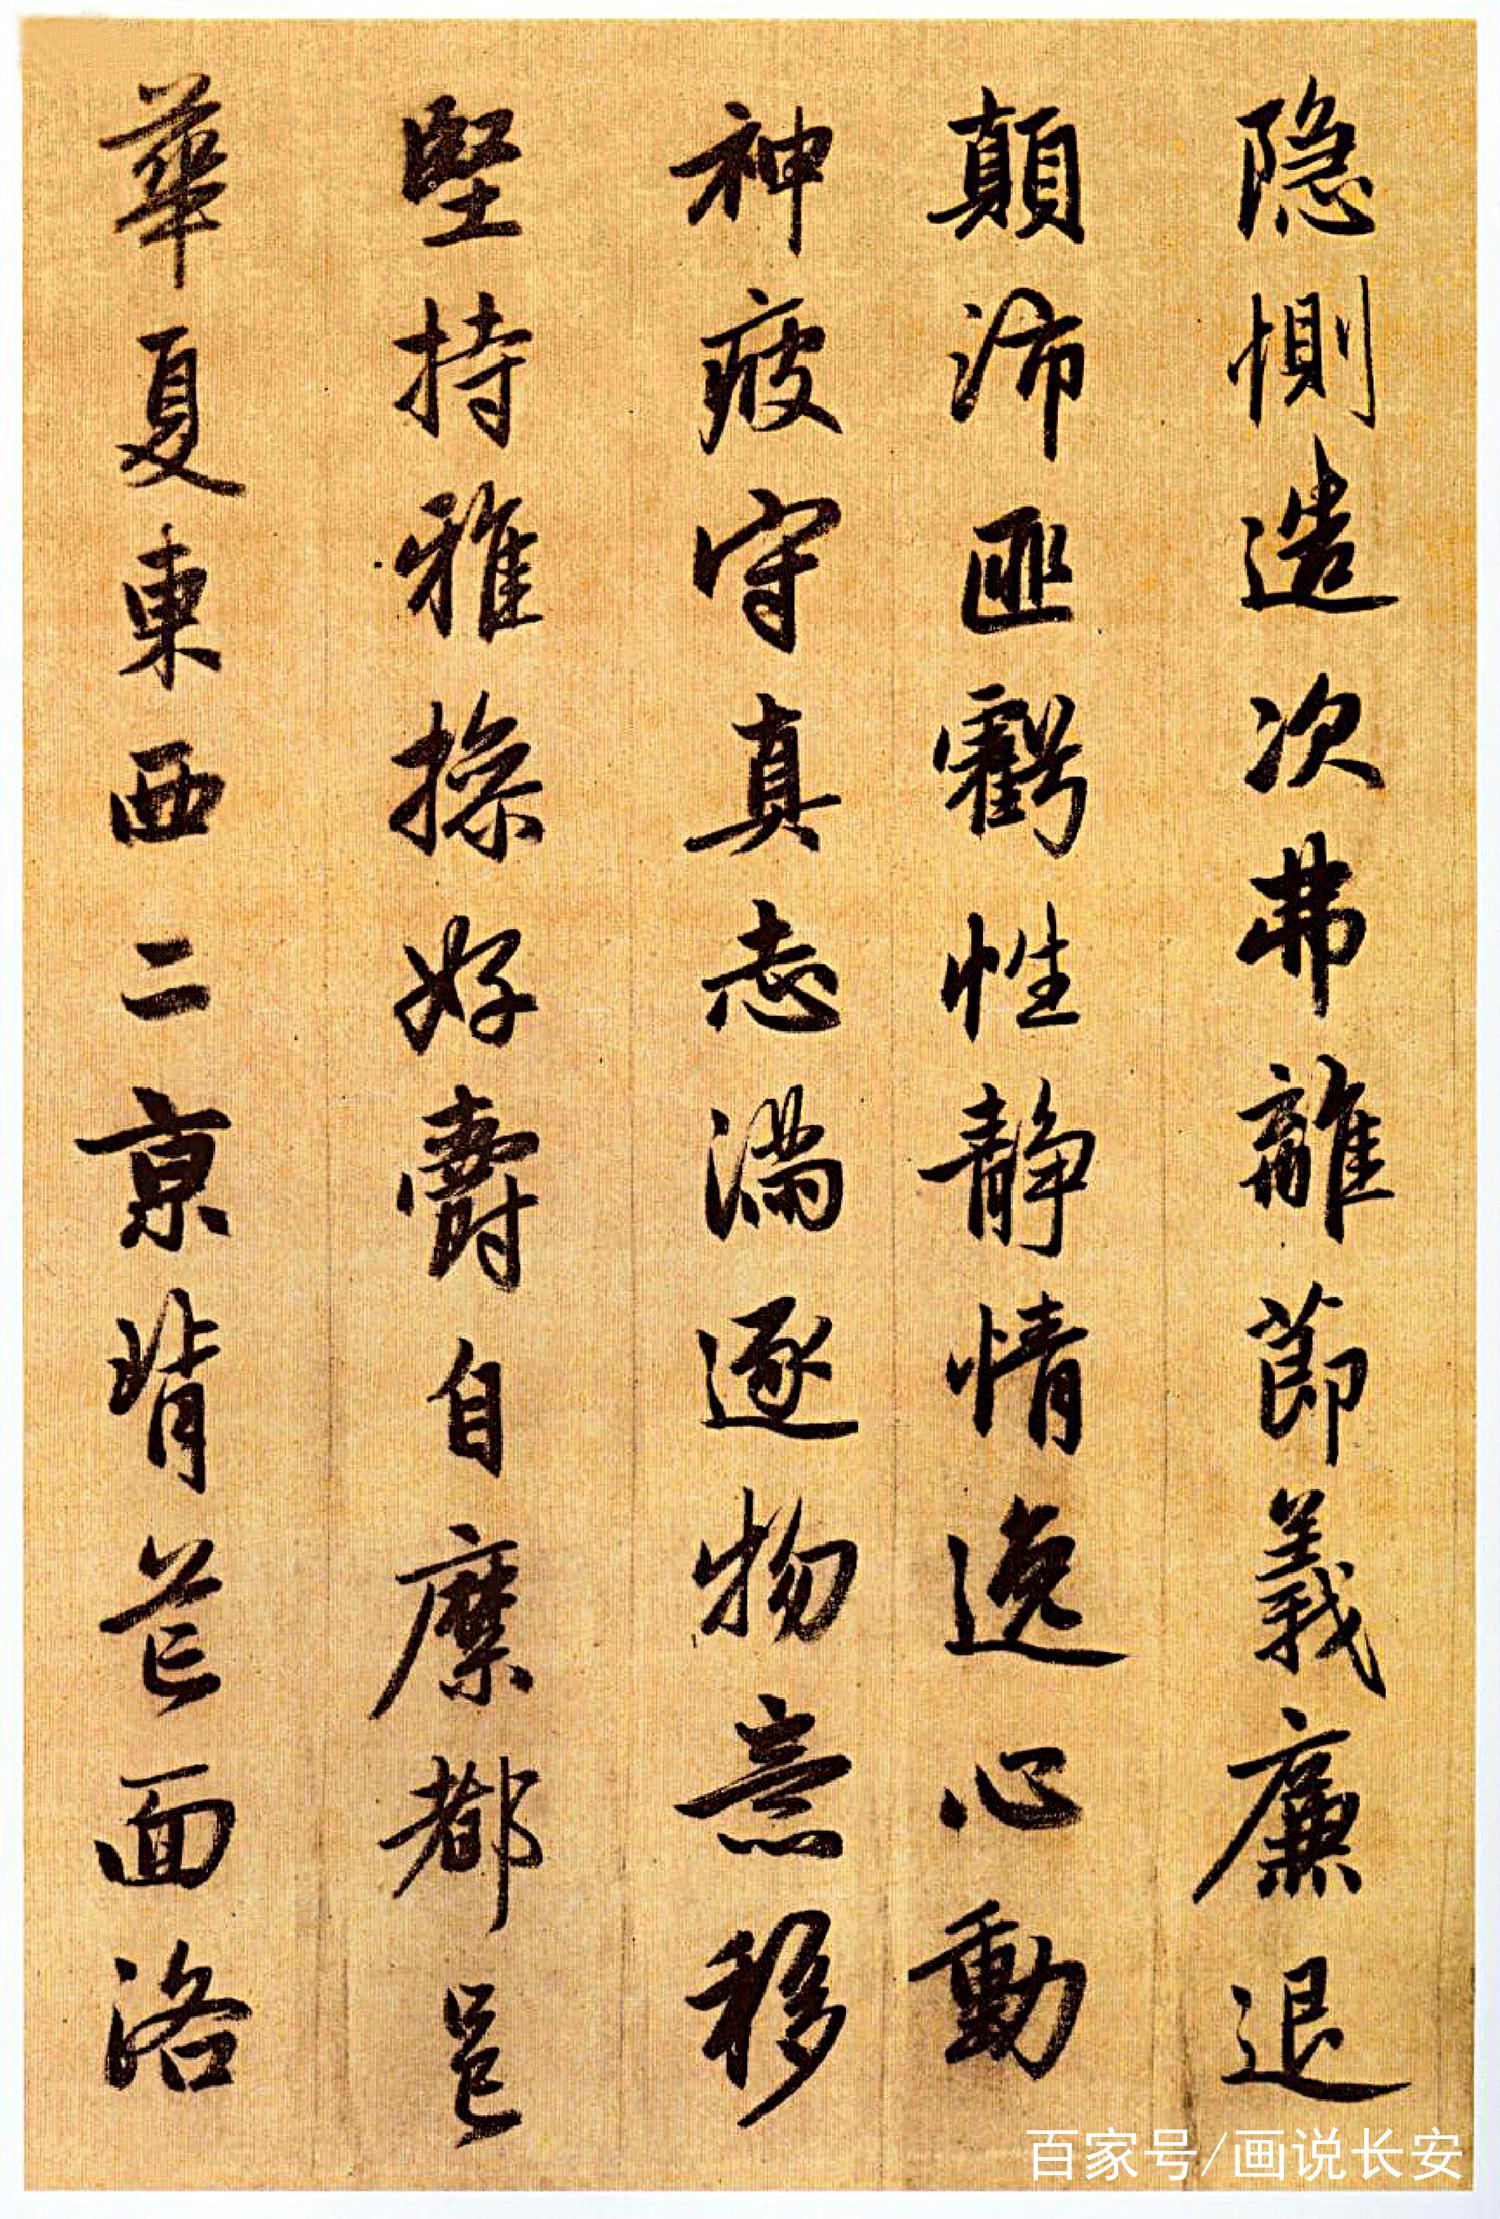 隐惻造次弗離節義廉退
顛沛匪虧性静情逸心動
神疲守真志滿逐物意移
堅持雅操好爵自縻都邑
華夏東西二京背芒面洛
百家号/画说长安